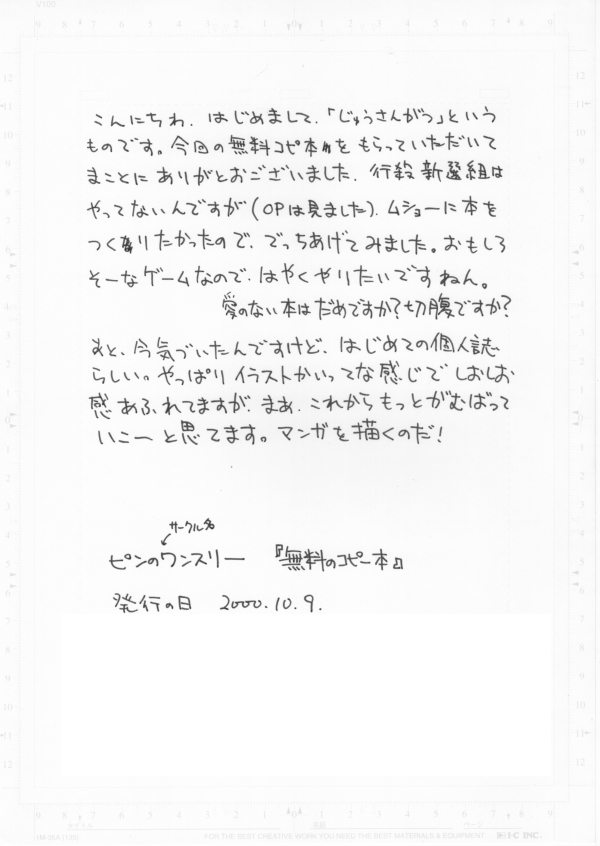 V100
こんにちわ、はじめまして、「じゅうさんがつ」という
ものです。今回の無料コピ本をもらっていただいて
まことにありがとおございました、行殺新選組は
やってないんですが(OPは見ました)、ムショーに本を
つくりたかったので、でっちあげてみました。おもしろ
そーなゲームなので、はやくやりたいですねん。
愛のない本はだめですか?切腹ですか?
あと、今気づいたんですけど、はじめての個人誌
らしい。やっぱりイラストかいってな感じでしおしお
感あふれてますが、まあ、これからもっとがむばって
いこーと思てます。マンガを描くのだ!
サークル名
ピンのワンスリー 『無料のコピー本』
発行の日 2000.10.9.
FOR THE BEST CREATIVE WORK YOU NEED THE BEST MATERIALS & EQUIPMENT I·C INC.